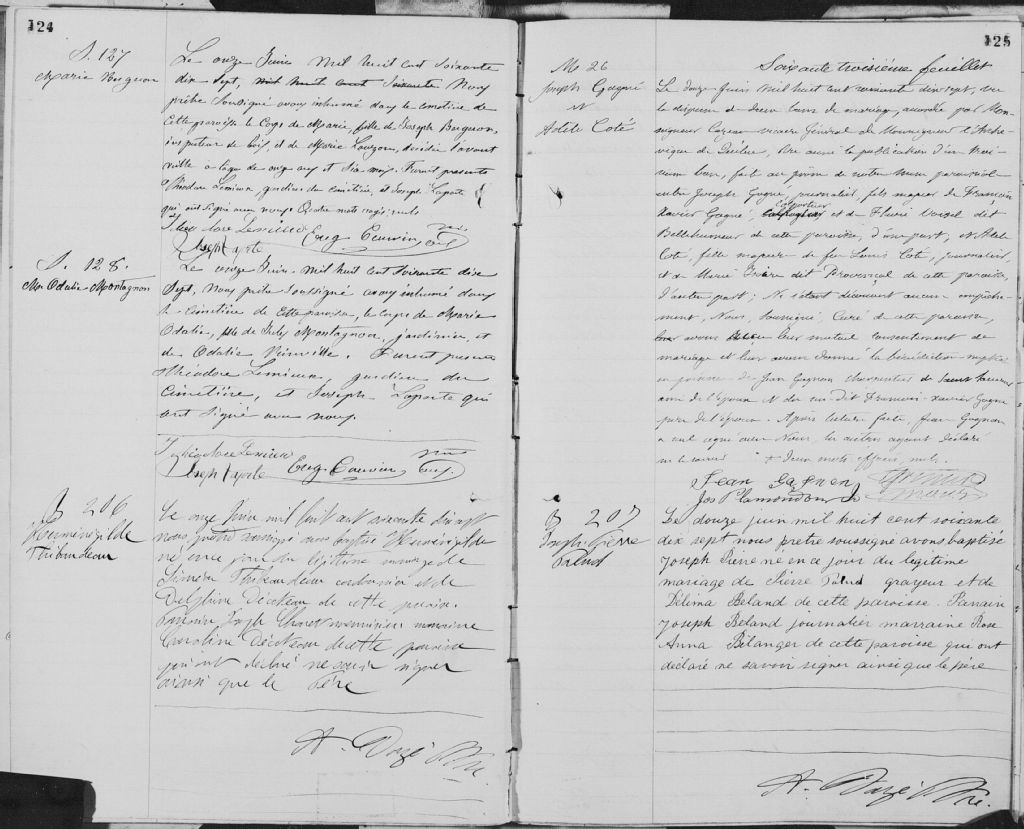 124
S. 127
Marie Bugeon
Le onze Juin mil huit cent soixante
dix sept, mil huit cent soixante Nous
prêtre soussigné avons inhumé dans le cimetière de
cette paroisse le Corps de Marie, fille de Joseph Bugeon,
inspecteur de bois et de Marie décédée l'avant
veille à l'age de onze ans et six mois. Furent presents
Théodore Lemieux gardien du cimetière, et Joseph Laporte
qui ont signé avec nous. Quatre mots rayés nuls
Theodore Lemieux
Joseph Laporte Eug Cauvin
S. 128.
Mie Odalie Montagnon
Le onze Juin mil huit cent soixante dix
sept, Nous prêtre soussigné avons inhumé dans
le cimetière de cette paroisse, le corps de Marie
Odalie, fille de July Montagnon, jardinier, et
de Odalie Vienville. Furent presents
Théodore Lemieux, gardien du
Cimetière, et Joseph Laporte qui
ont signé avec nous.
Theodore Lemieux
Joseph Laporte Eug Cauvin
B 206
Herménégilde
Thibaudeau
Le onze Juin mil huit cent soixante dix sept
nous prêtre soussigné avons baptisé Herménégilde
né ce jour du légitime mariage de
Siméon Thibaudeau cordonnier et de
Delphine Décoteau de cette paroisse.
Parrain Joseph menuisier marraine
Caroline Décoteau de cette paroisse
qui ont déclaré ne savoir signer
ainsi que le Père
A. Dozé Ptre
125
Soixante troisième feuillet
M 26
Joseph Gagné
et
Adèle Coté
Le douze Juin mil huit cent soixante dix sept, vu
la dispense de deux bans de mariage, accordée par Mon-
seigneur Cazeau vicaire Général de Monseigneur l'Arche-
vêque de Québec, Vu aussi la publication d'un troi-
sième ban, fait au prône de notre messe paroissiale
entre Joseph Gagné, journalier, fils majeur de François
Xavier Gagné, colporteur et de Fleurie Voisel dit
Bellehumeur de cette paroisse, d'une part, et Adèle
Coté, fille majeure de feu Louis Coté, journalier,
et de Marie dit Provençal de cette paroisse,
d'autre part; Ne s'étant découvert aucun empêche-
ment, Nous, soussigné, Curé de cette paroisse,
avons reçu leur mutuel consentement de
mariage et leur avons donné la bénédiction nuptiale
en présence de Jean Gagnon charpentier de
ami de l'époux et du sus-dit François-Xavier Gagné
père de l'époux. Après lecture faite, Jean Gagnon
a seul signé avec Nous, les autres ayant déclaré
ne le savoir + Deux mots effacés nuls.
Jean Gagnon
Jos Plamondon
B 207
Joseph Pierre
Palud
Le douze juin mil huit cent soixante
dix sept nous prêtre soussigné avons baptisé
Joseph Pierre né en ce jour du légitime
mariage de Pierre Palud grayeur et de
Délima Béland de cette paroisse. Parrain
Joseph Beland journalier marraine Rose
Anna Bélanger de cette paroisse qui ont
déclaré ne savoir signer ainsi que le père
A. Dozé Ptre.